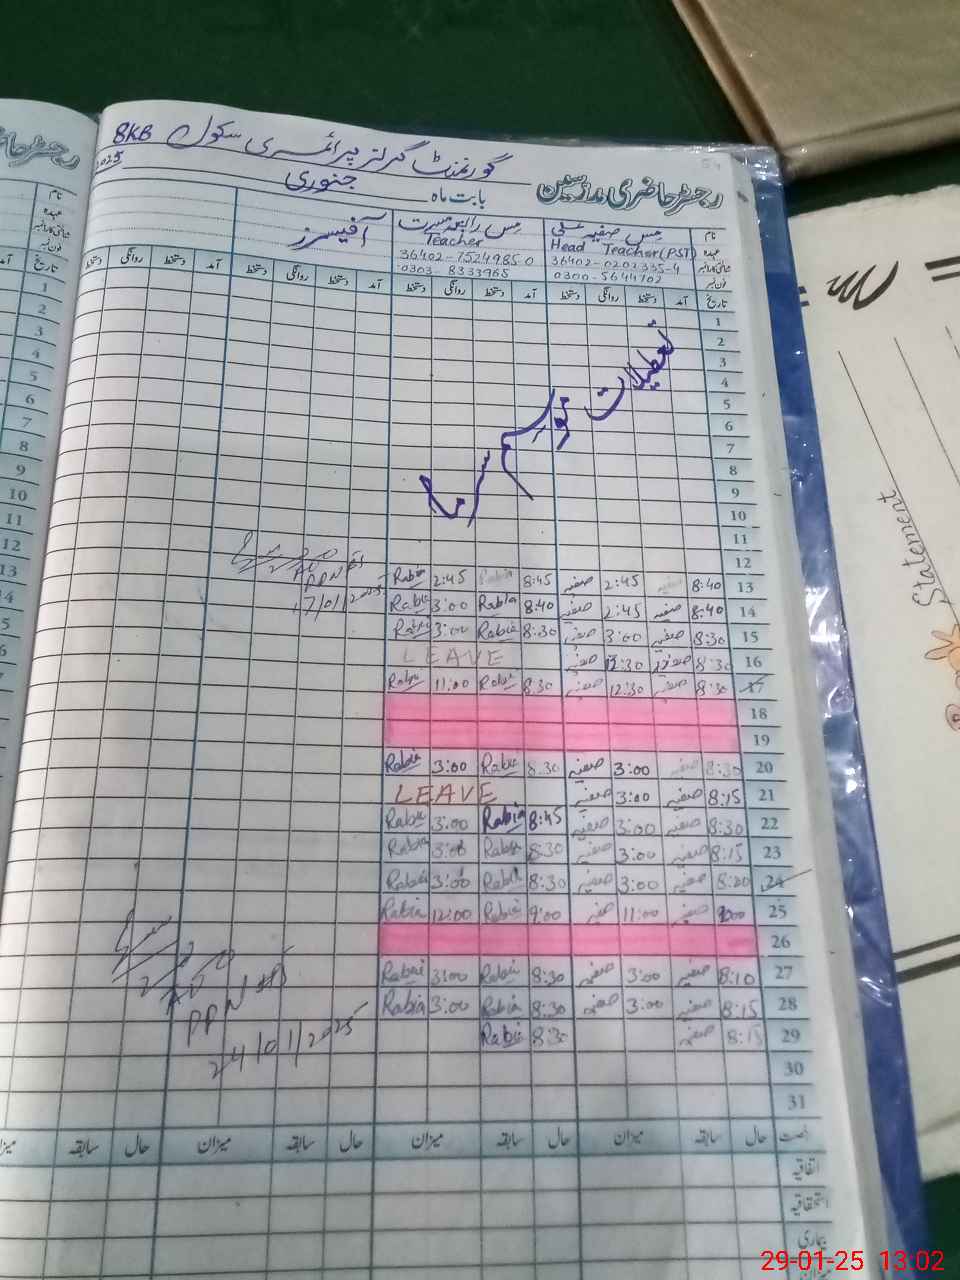 گورنمنٹ گرلز پرائمری سکول 8KB
رجسٹر حاضری مدرسین
بابت ماہ جنوری 2025
نام مس صفیہ مس رابعہ مسرت آفیسرز
عہدہ Head Teacher(PST) Teacher
36402-0202335-4 36402-7524985-0
فون نمبر 0300-5644702 0303-8333965
تاریخ آمد دستخط روانگی دستخط آمد دستخط روانگی دستخط آمد دستخط روانگی دستخط آمد دستخط روانگی دستخط
1
2
3
4
5
6
7
8
9
10
11
12
تعطیلات موسم سرما
13 8:40 صفیہ 2:45 صفیہ 8:45 Rabia 2:45 Rabia
14 8:40 صفیہ 2:45 صفیہ 8:40 Rabia 3:00 Rabia
15 8:30 صفیہ 3:00 صفیہ 8:30 Rabia 3:00 Rabia
16 8:30 صفیہ 12:30 صفیہ LEAVE
17 8:30 صفیہ 12:30 صفیہ 8:30 Rabia 11:00 Rabia
18
19
20 8:30 صفیہ 3:00 صفیہ 8:30 Rabia 3:00 Rabia
21 8:15 صفیہ 3:00 صفیہ LEAVE
22 8:30 صفیہ 3:00 صفیہ 8:45 Rabia 3:00 Rabia
23 8:15 صفیہ 3:00 صفیہ 8:30 Rabia 3:00 Rabia
24 8:20 صفیہ 3:00 صفیہ 8:30 Rabia 3:00 Rabia
25 9:00 صفیہ 11:00 صفیہ 9:00 Rabia 12:00 Rabia
26
27 8:10 صفیہ 3:00 صفیہ 8:30 Rabia 3:00 Rabia
28 8:15 صفیہ 3:00 صفیہ 8:30 Rabia 3:00 Rabia
29 8:15 صفیہ 8:30 Rabia
30
31
حال سابقہ میزان حال سابقہ میزان حال سابقہ میزان حال سابقہ میزان
اتفاقیہ
استحقاقیہ
بیماری
میزان
17/01/2025
24/01/2025
رجسٹر حاضری
نام
عہدہ
فون نمبر
تاریخ
1
2
3
4
5
6
7
8
9
10
11
12
13
14
15
Statement
29-01-25 13:02